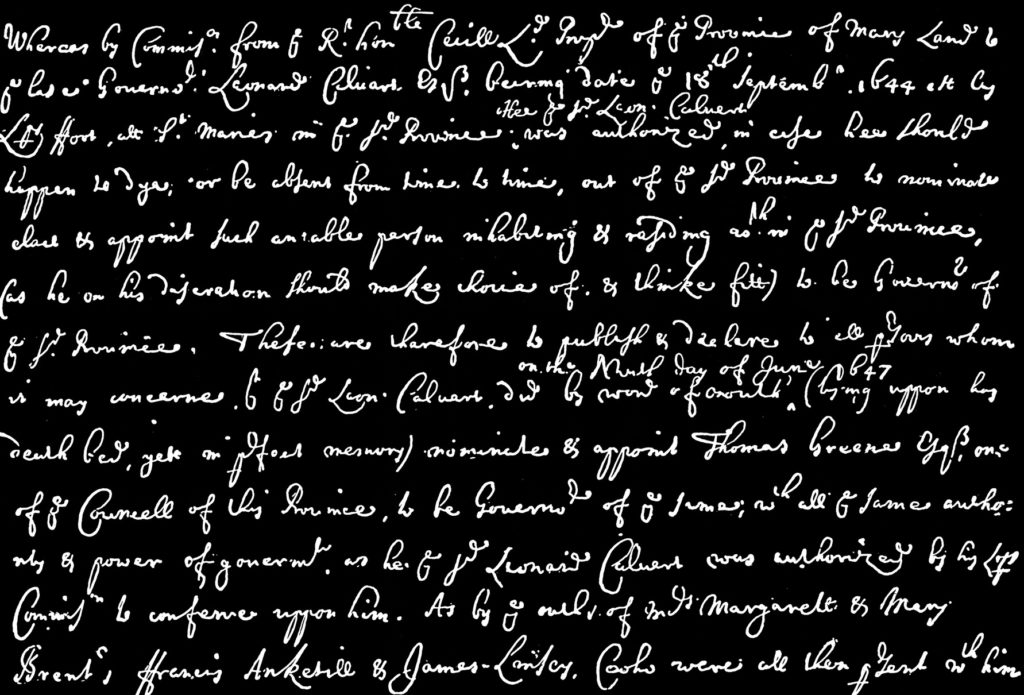 Whereas by Commiss:n from ye Rt hon:the Cecill Ld Propr of ye Province of Mary Land to
ye late Governor Leonard Calvert Esqr. bearing date ye 18th Septemb:r 1644 att
ffort, att St Maries in ye sd Province, hee ye sd Leon: Calvert was authorized, in case hee should
happen to dye, or be absent from time to time, out of ye sd Province to nominate
elect & appoint such an able person inhabiting & residing wth in ye sd Province,
(as he on his discretion should make choice of, & thinke fitt) to be Governor of
ye sd Province. These are therefore to publish & declare to all psons whom
it may concerne, yt ye sd Leon: Calvert, did by word of mouth on the Ninth day of June 1647 (lying uppon his
death bed, yett in pfect memory) nominate & appoint Thomas Greene Esqr, one
of ye Councell of this Province, to be Governor of ye same; wth all ye same autho:
rity & power of governmt, as he ye sd Leonard Calvert was authorized by his Lops
Commissn to conferre uppon him. As by ye oaths of Mrs Margarett & Mary
Brent, ffrancis Anketill & James Linsey, (who were all then psent wth him